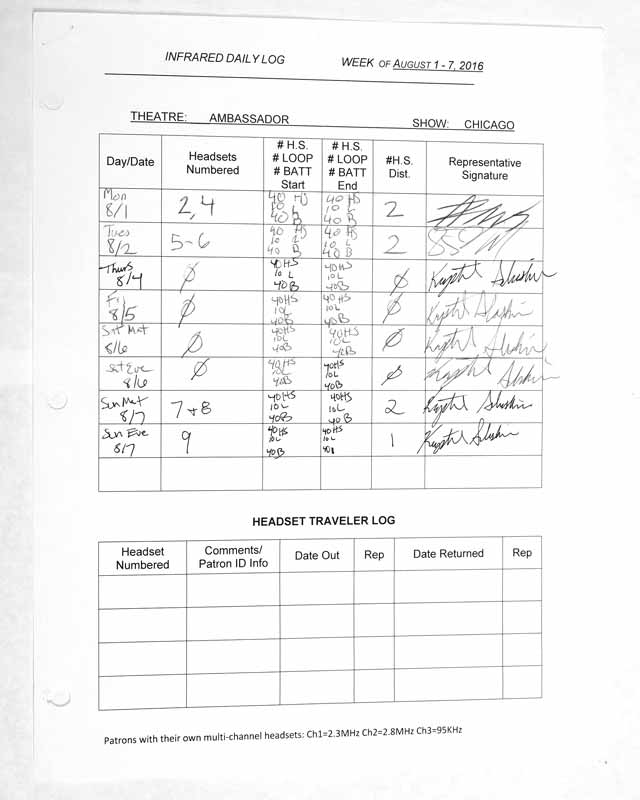 INFRARED DAILY LOG WEEK OF AUGUST 1 - 7, 2016
THEATRE: AMBASSADOR SHOW: CHICAGO
Day/Date Headsets Numbered # H.S. # LOOP # BATT Start # H.S. # LOOP # BATT End #H.S. Dist. Representative Signature
Mon 8/1 2,4 40 HS 10 L 40 B 40 HS 10 L 40 B 2
Tues 8/2 5-6 40 HS 10 L 40 B 40 HS 10 L 40 B 2
Thurs 8/4 Ø 40HS 10 L 40B 40HS 10L 40B Ø Krystal
Fri 8/5 Ø 40HS 10L 40B 40HS 10L 40B Ø Krystal
Sat Mat 8/6 Ø 40HS 10L 40B 40HS 10L 40B Ø Krystal
Sat Eve 8/6 Ø 40HS 10L 40B 40HS 10L 40B Ø Krystal
Sun Mat 8/7 7+8 40HS 10L 40B 40HS 10L 40B 2 Krystal
Sun Eve 8/7 9 40HS 10L 40B 40HS 10L 40B 1 Krystal
HEADSET TRAVELER LOG
Headset Numbered Comments/ Patron ID Info Date Out Rep Date Returned Rep
Patrons with their own multi-channel headsets: Ch1=2.3MHz Ch2=2.8MHz Ch3=95KHz